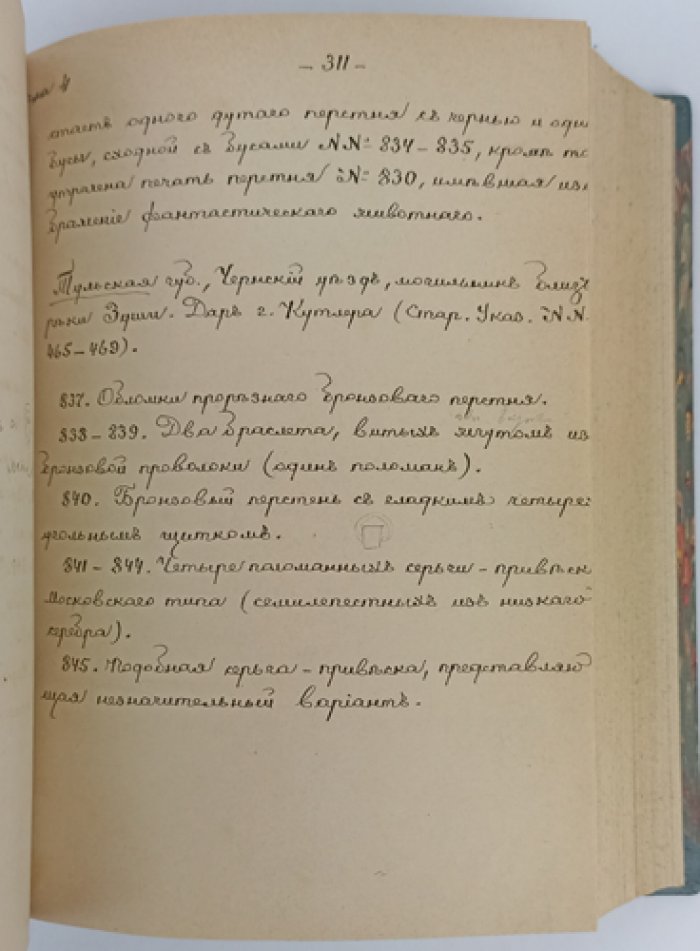 — 311 —
стаетъ одного дутаго перстня съ чернью и одн
бусы, сходной съ бусами №№ 834–835, кромѣ то
утрачена печать перстня № 830, имѣвшая изо
браженіе фантастическаго животнаго.
Тульская губ., Чернскій уѣздъ, могильникъ близъ
рѣки Зуши. Даръ г. Кутлера (Стар. Указ. №№
465–469).
837. Обломки прорѣзнаго бронзоваго перстня.
838–839. Два браслета, витыхъ жгутомъ из
бронзовой проволоки (одинъ поломанъ).
840. Бронзовый перстень съ гладкимъ четыре-
угольнымъ щиткомъ.
841–844. Четыре поломанныхъ серьги-привѣск
Московскаго типа (семилепестныхъ изъ низкаго
серебра).
845. Подобная серьга-привѣска, представляю
щая незначительный варіантъ.